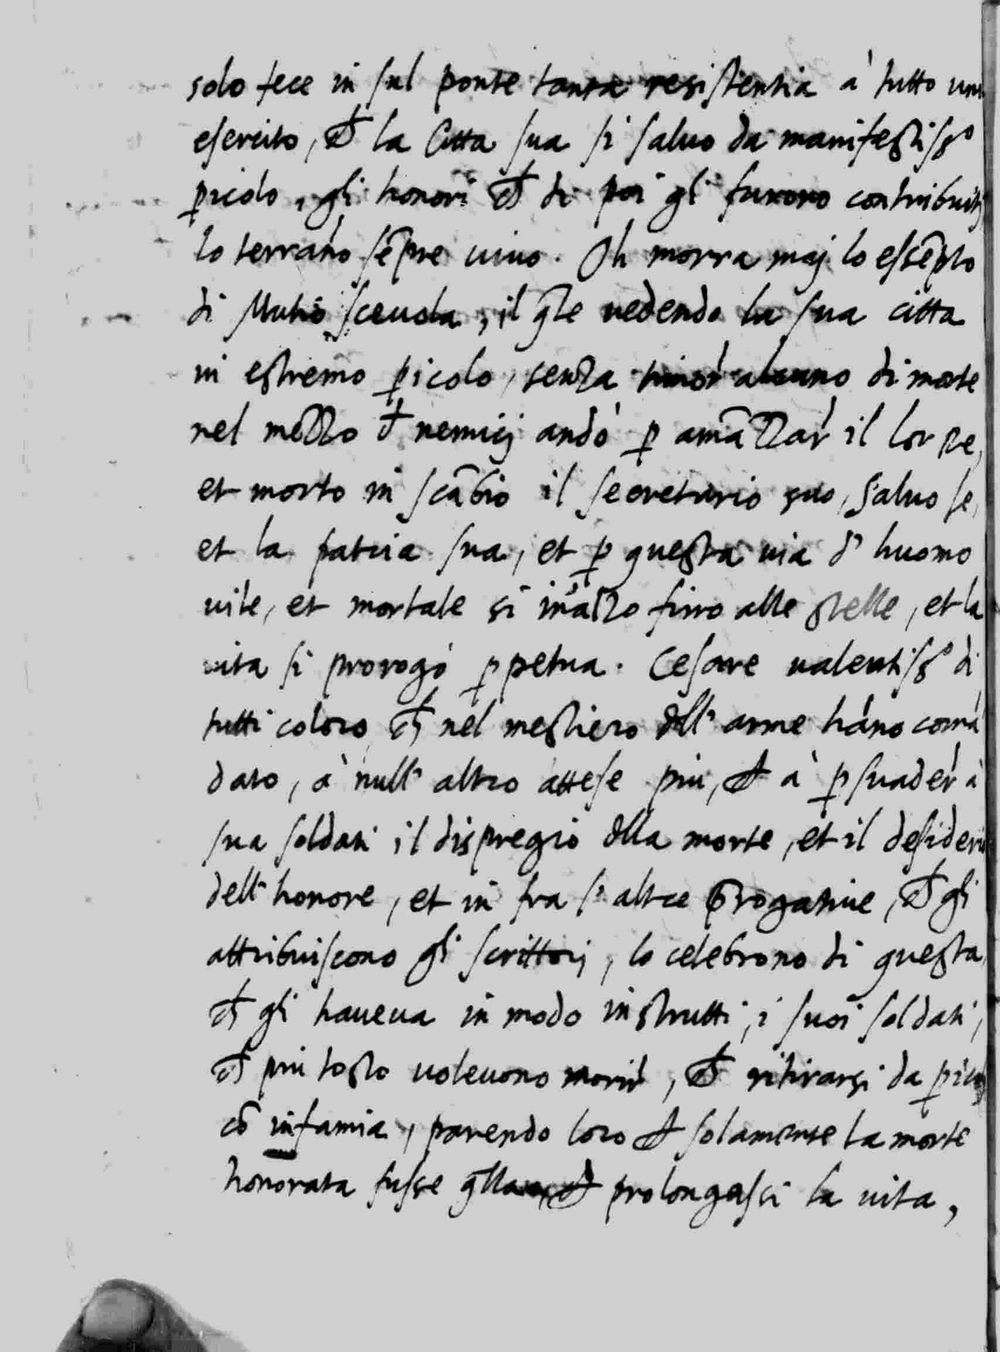 solo fece in sul ponte tanta resistentia à tutto un
esercito, ch̄ la Citta sua si saluo da manifestiss.º
p̱icolo, gli honori ch̄ di poi gli furono contribuiti
lo terrāno sēpre uiuo. Oh morra maj lo esēplo
di Mutio Sceuola, il q̄le uedendo la sua citta
in estremo p̱icolo, senza timor alcuno di morte
nel mezzo d' nemicj andò p̱ amāzzar il lor Re,
et morto in scābio il secretario suo, saluo se,
et la patria sua, et p̱ questa uia d' huomo
uile, et mortale si inalzo fino alle stelle, et la
uita si prorogò p̱petua. Cesare ualentiss.º di
tutti coloro ch̄ nel mestiero dell' arme hāno comā
dato, à null' altro attese piu, ch̄ à p̱suader à
sua soldati il dispregio dlla morte, et il desideri
dell' honore, et in fra l' altre p̄rogatiue, ch̄ gli
attribuiscono gli scrittorj, lo celebrono di questa,
ch̄ gli haueua in modo instrutti, i suoi soldati,
ch̄ piu tosto uoleuono morir, ch̄ ritirarsi da p̱ic
cō infamia, parendo loro ch̄ solamente la morte
honorata fusse q̄lla, ch̄ prolongassi la uita,